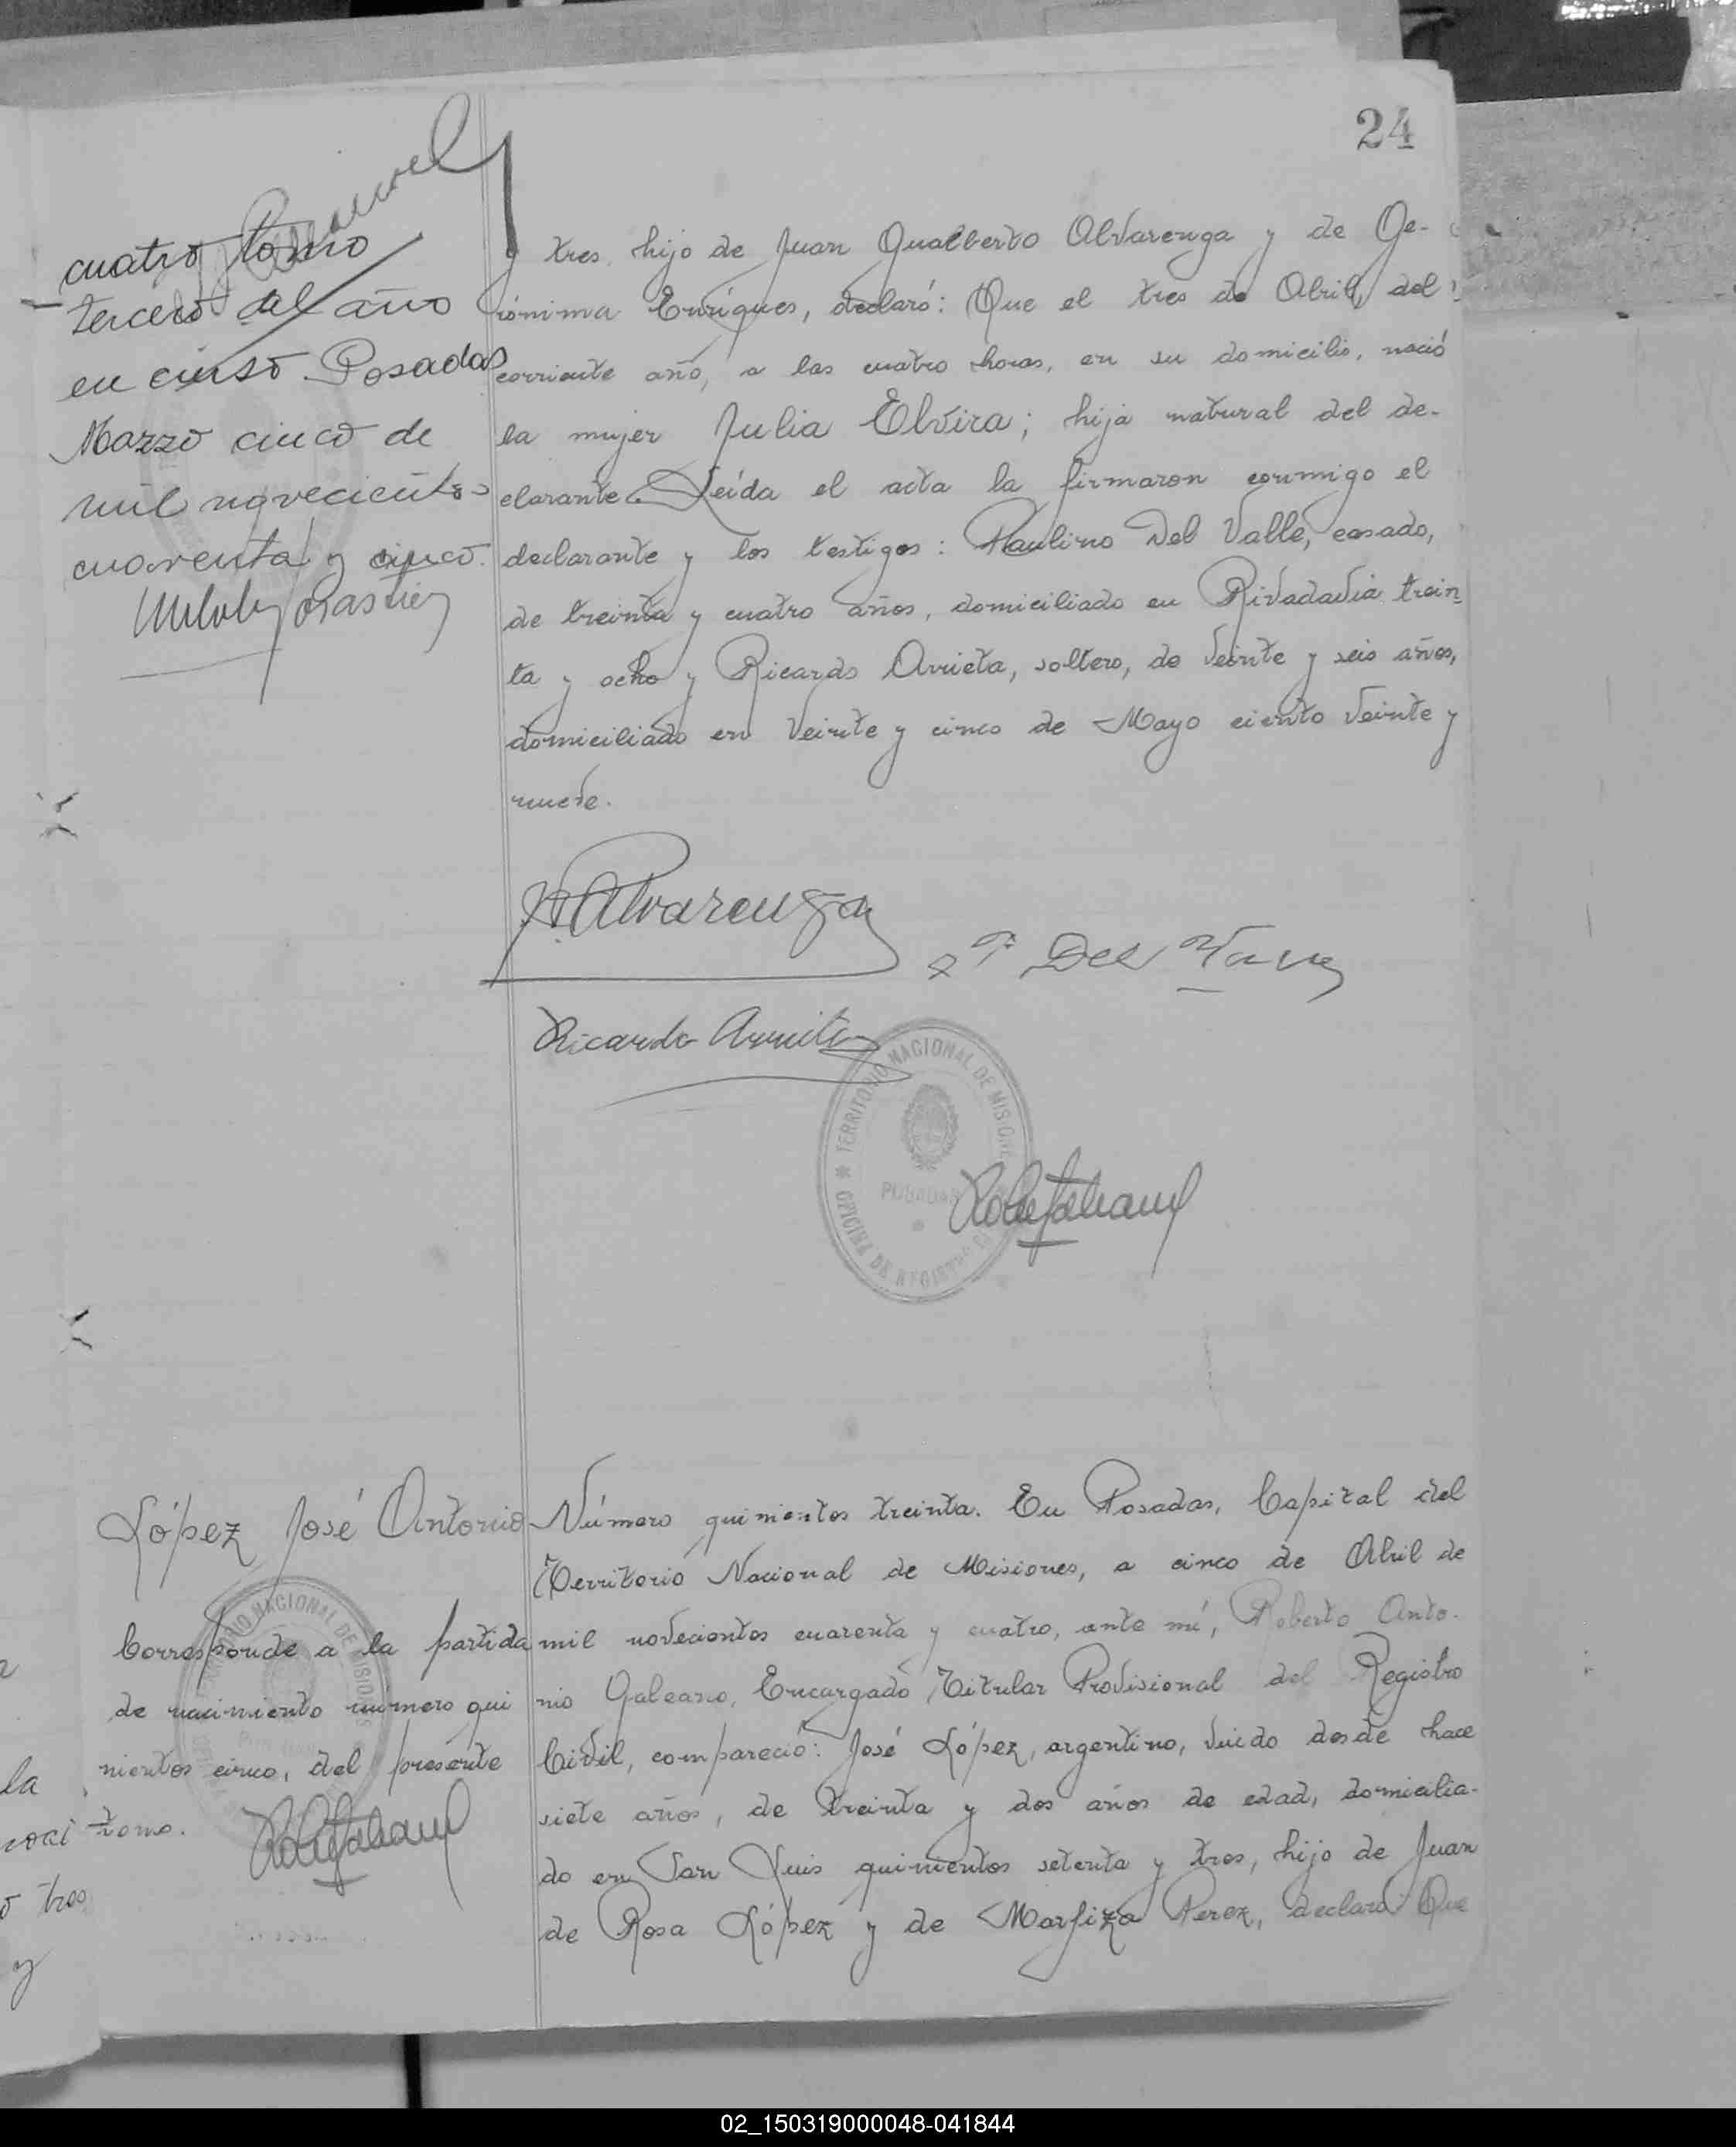 24
cuatro tomo
tercero del año
en curso Posadas
Marzo cinco de
mil novecientos
cuarenta y cinco.
y tres, hijo de Juan Gualberto Alvarenga y de Ge-
rónima Enríques, declaró: Que el tres de Abril, del
corriente año, a las cuatro horas, en su domicilio, nació
la mujer Julia Elvira; hija natural del de-
clarante. Leída el acta la firmaron conmigo el
declarante y los testigos: Paulino Del Valle, casado,
de treinta y cuatro años, domiciliado en Rivadavia trein-
ta y ocho y Ricardo Arrieta, soltero, de veinte y seis años,
domiciliado en Veinte y cinco de Mayo ciento veinte y
nueve.
Alvarenga
P Del Valle
Ricardo Arrieta
TERRITORIO NACIONAL DE MISIONES
POSADAS
OFICINA DE REGISTRO
López José Antonio
Corresponde a la partida
de nacimiento número qui
nientos cinco, del presente
tomo.
TERRITORIO NACIONAL DE MISIONES
Número quinientos treinta. En Posadas, Capital del
Territorio Nacional de Misiones, a cinco de Abril de
mil novecientos cuarenta y cuatro, ante mí, Roberto Anto-
nio Galeano, Encargado Titular Provisional del Registro
Civil, compareció: José López, argentino, viudo desde hace
siete años, de treinta y dos años de edad, domicilia-
do en San Luis quinientos setenta y tres, hijo de Juan
de Rosa López y de Marfiza Perez, declaró: Que
la
tres
y
02_150319000048-041844